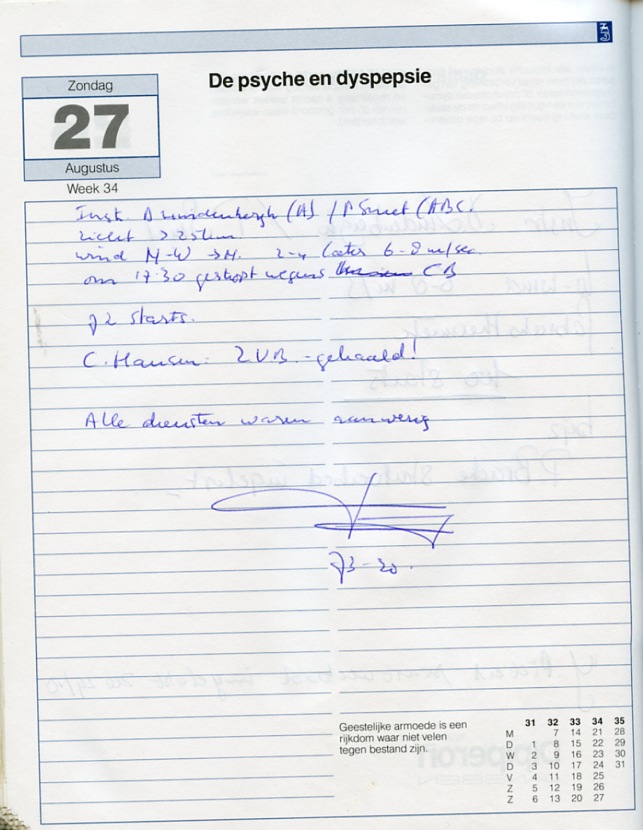 De psyche en dyspepsie
Zondag
27
Augustus
Week 34
Inst. (A) / P Smeet (ABC.
zicht > 25km.
wind N-W → N. 2-4 later 6-8 m/sec.
om 17.30 gestopt wegens CB
72 starts.
C. Hansen: ZVB. - gehaald!
Alle diensten waren aanwezig
Geestelijke armoede is een
rijkdom waar niet velen
tegen bestand zijn.
31 32 33 34 35
M 7 14 21 28
D 1 8 15 22 29
W 2 9 16 23 30
D 3 10 17 24 31
V 4 11 18 25
Z 5 12 19 26
Z 6 13 20 27